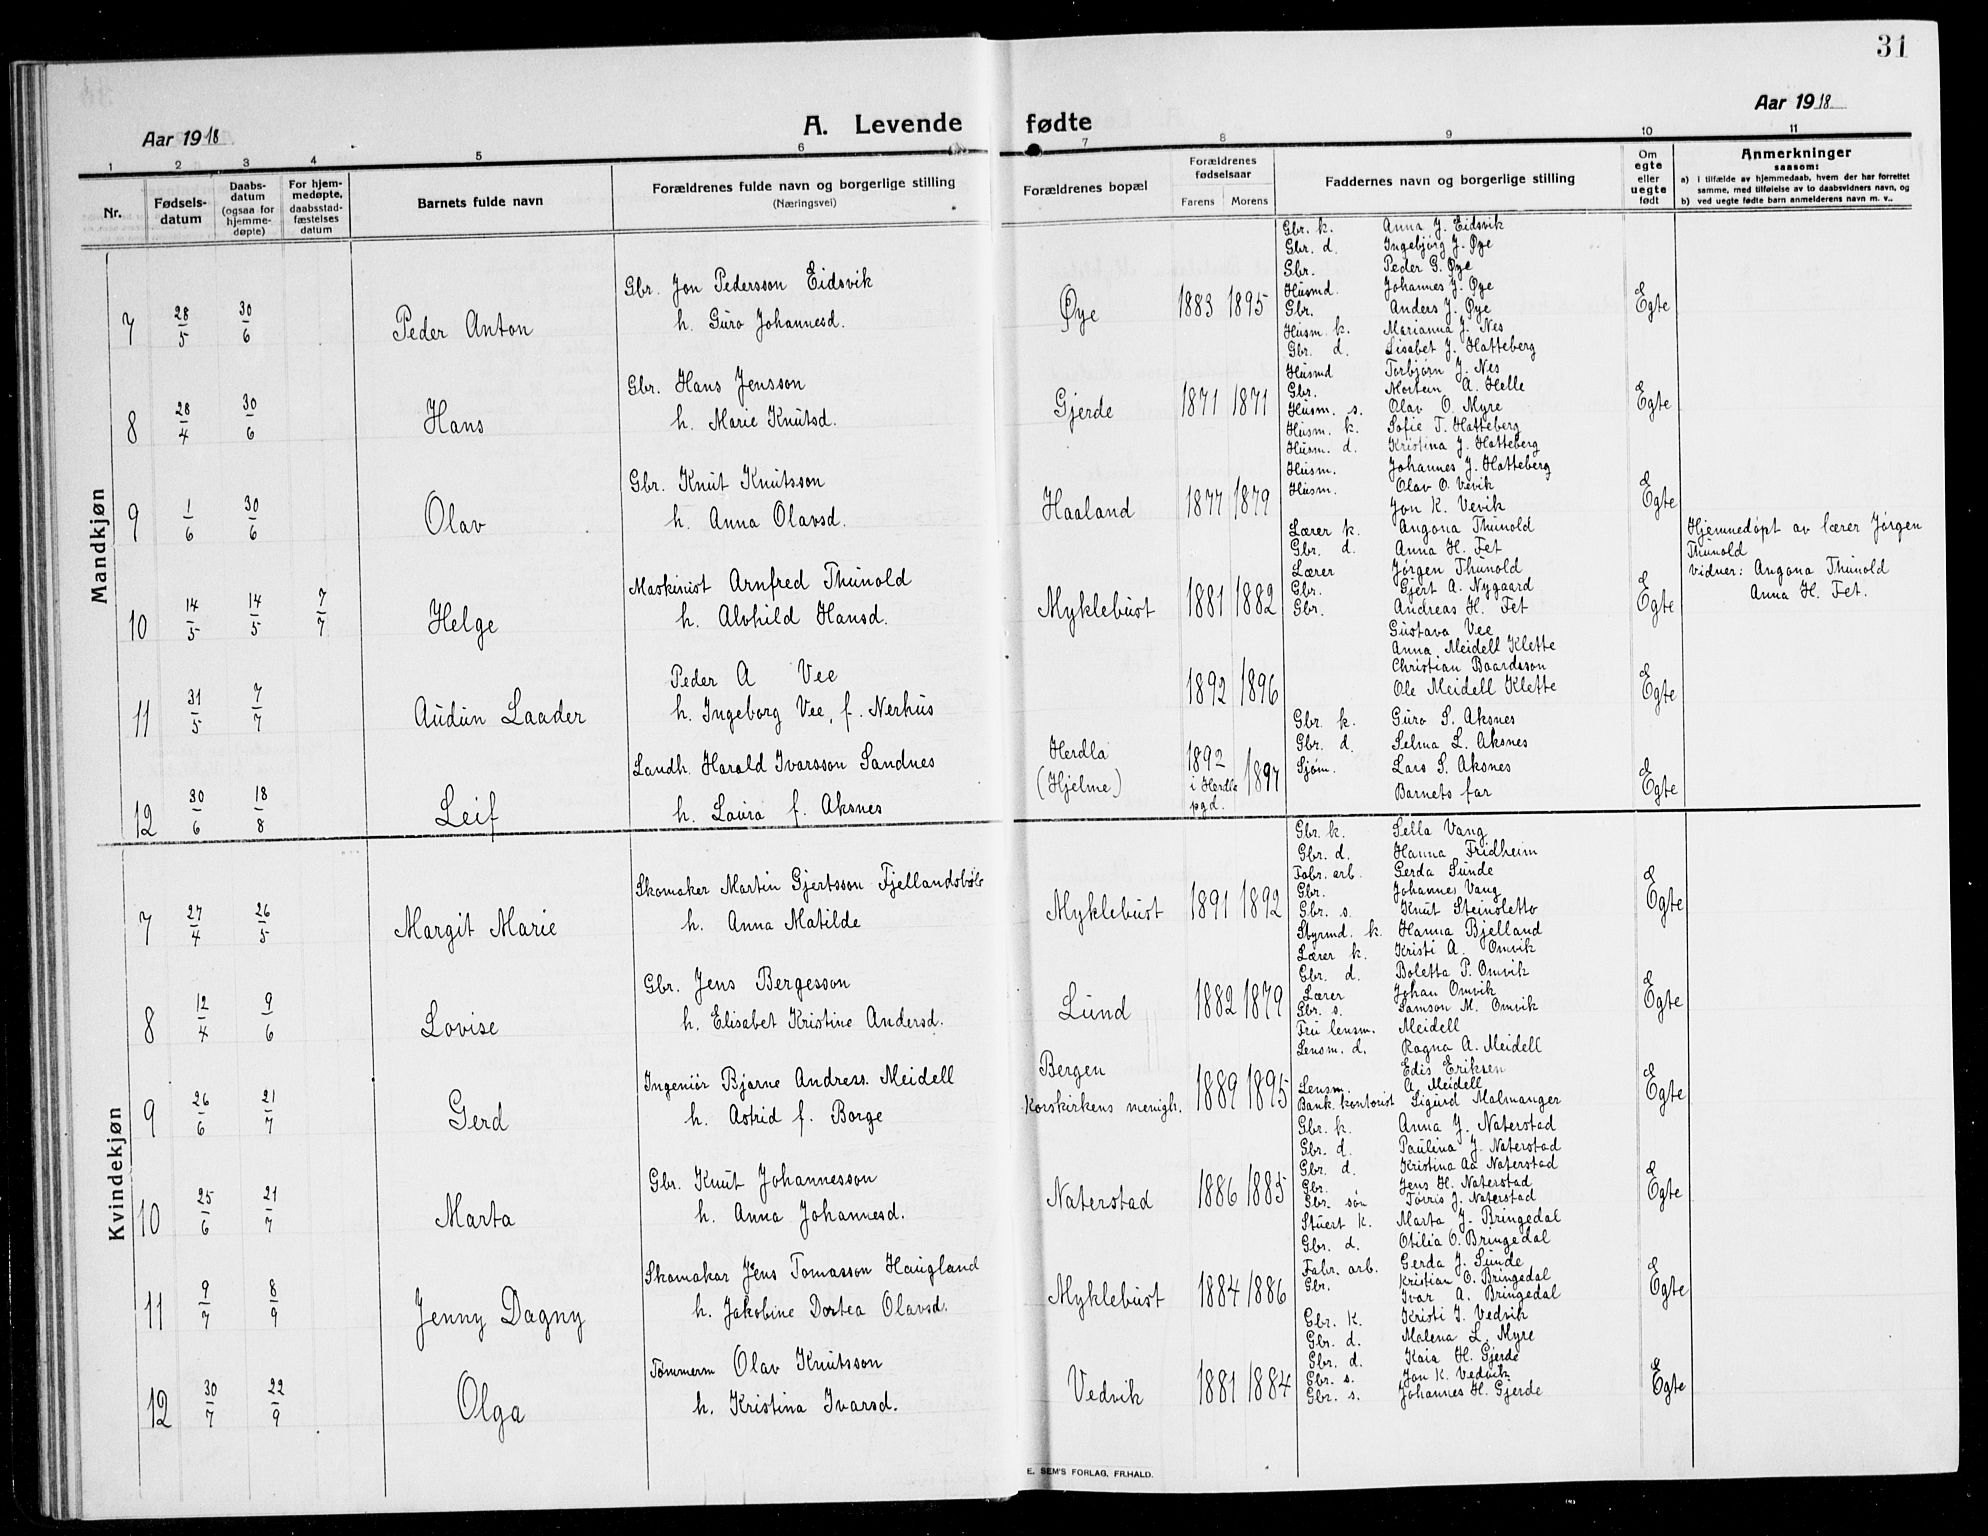 31
Aar 1918
A. Levende fødte
Aar 1918
1 2 3 4 5 6 7 8 9 10 11
Nr.
Fødsels-
datum
Daabs-
datum
(ogsaa for
hjemme-
døpte)
For hjem-
medøpte,
daabsstad-
fæstelses
datum
Barnets fulde navn
Forældrenes fulde navn og borgerlige stilling
(Næringsvei)
Forældrenes bopæl
Forældrenes
fødselsaar
Farens Morens
Faddernes navn og borgerlige stilling
Om
egte
eller
uegte
født
Anmerkninger
saasom:
a) i tilfælde av hjemmedaab, hvem der har forrettet
samme, med tilføielse av to daabsvidners navn, og
b) ved uegte fødte barn anmelderens navn m. v..
Mandkjøn
7 28/5 30/6 Peder Anton
Gbr. Jon Pedersson Eidsvik
h. Guro Johannesd.
Øye 1883 1895
Gbr. k. Anna J. Eidsvik
Gbr. d. Ingebjørg J. Øye
Gbr. Peder G. Øye
Husmd. Johannes J. Øye
Gbr. Anders J. Øye
Egte
8 28/4 30/6 Hans
Gbr. Hans Jensson
h. Marie Knutsd.
Gjerde 1871 1871
Husm. k. Marianna J. Nes
Gbr. d. Lisabet J. Hatteberg
Husmd Torbjørn J. Nes
Gbr. Mortein A. Helle
Husm. s. Olav O. Myre
Egte
9 1/6 30/6 Olav
Gbr. Knut Knutsson
h. Anna Olavsd.
Haaland 1877 1879
Husm. k. Sofie T. Hatteberg
Husm. d. Kristina J. Hatteberg
Husm. Johannes J. Hatteberg
Husm. Olav O. Vevik
Jon K. Vevik
Egte
10 14/5 14/5 7/7 Helge
Maskinist Arnfred Thunold
h. Alvhild Hansd.
Myklebust 1881 1882
Lærer k. Angona Thunold
Gbr. d. Anna H. Fet
Lærer Jørgen Thunold
Gbr. Gjert A. Nygaard
Gbr. Andreas H. Fet
Egte
Hjemmedøpt av lærer Jørgen
Thunold
Vidner: Angona Thunold
Anna H. Fet.
11 31/5 7/7 Audun Laader
Peder A Vee
h. Ingeborg Vee, f. Nerhus
1892 1896
Gustava Vee
Anna Meidell Klette
Christian Baardsson
Ole Meidell Klette
Egte
12 30/6 18/8 Leif
Landh. Harald Ivarsson Sandnes
h. Laura f. Aksnes
Herdla
(Hjelme)
1892
i Herdla
pgd.
1897
Gbr. k. Guro S. Aksnes
Gbr. d. Selma L. Aksnes
Sjøm. Lars S. Aksnes
Barnets far
Egte
Kvindekjøn
7 27/4 26/5 Margit Marie
Skomaker Martin Gjertsson Fjellandsbøle
h. Anna Matilde
Myklebust 1891 1892
Gbr. k. Sella Vang
Gbr. d. Hanna Fridheim
Fabr. arb. Gerda Sunde
Gbr. Johannes Vang
Gbr. s. Knut Steinsletto
Egte
8 12/4 9/6 Lovise
Gbr. Jens Bergesson
h. Elisabet Kristine Andersd.
Lund 1882 1879
Styrmd. k. Hanna Bjelland
Lærer k. Kristi A. Omvik
Gbr. d. Boletta P. Omvik
Lærer Johan Omvik
Gbr. s. Samson M. Omvik
Egte
9 26/6 21/7 Gerd
Ingeniør Bjarne Andress. Meidell
h. Astrid f. Borge
Bergen
Korskirkens menigh.
1889 1895
Fru lensm. Meidell
Lensm. d. Ragna A. Meidell
Edis Eriksen
Lensm. A. Meidell
Bank. kontorist Sigurd Malmanger
Egte
10 25/6 21/7 Marta
Gbr. Knut Johannesson
h. Anna Johannesd.
Naterstad 1886 1885
Gbr. k. Anna J. Naterstad
Gbr. d. Paulina J. Naterstad
Gbr. d. Kristina Aa Naterstad
Gbr. Jens H. Naterstad
Gbr. søn Tørris J. Naterstad
Egte
11 9/7 8/9 Jenny Dagny
Skomakar Jens Tomasson Haugland
h. Jakobine Dortea Olavsd.
Myklebust 1884 1886
Stuert k. Marta J. Bringedal
Gbr. d. Otilia O. Bringedal
Fabr. arb. Gerda J. Sunde
Gbr. Kristian O. Bringedal
Ivar A. Bringedal
Egte
12 30/7 22/9 Olga
Tømmerm Olav Knutsson
h. Kristina Ivarsd.
Vedvik 1881 1884
Gbr. K. Kristi I. Vedvik
Gbr. d. Malena L. Myre
Gbr. d. Kaia H. Gjerde
Gbr. s. Jon K. Vedvik
Gbr. s. Johannes H. Gjerde
Egte
E. SEM'S FORLAG, FR.HALD.